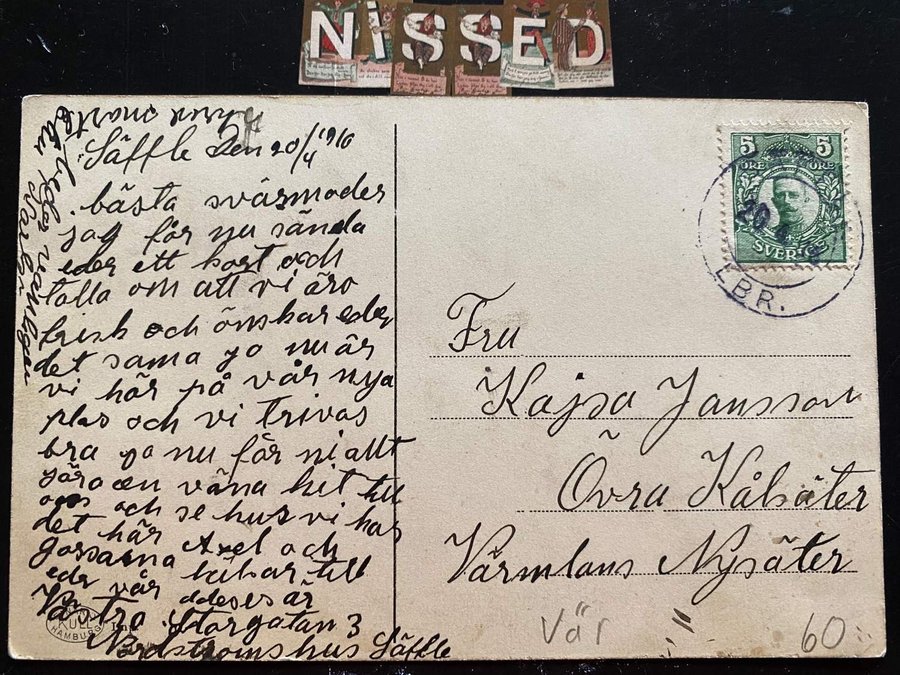 NiSSED
Säffle Den 20/4 1916
bästa svärmoder
jag får nu sända
eder ett kort och
talla om att vi äro
frisk och önskar eder
det sama ja nu är
vi här på vår nya
plas och vi trivas
bra ja nu får ni allt
jöra en vända hit till
oss och se hus vi har
det här
gossarna Axel och
hälsar till
eder vår addesesär
Västra Storgatan 3
Nordstroms hus Säffle
Eder vänligen
KULL
HAMBURG
5 5
ÖRE ÖRE
SVERIGE
20 4
LBR.
Fru
Kajsa Jansson
Övra Kålsäter
Värmlans Nysäter
Vär
60